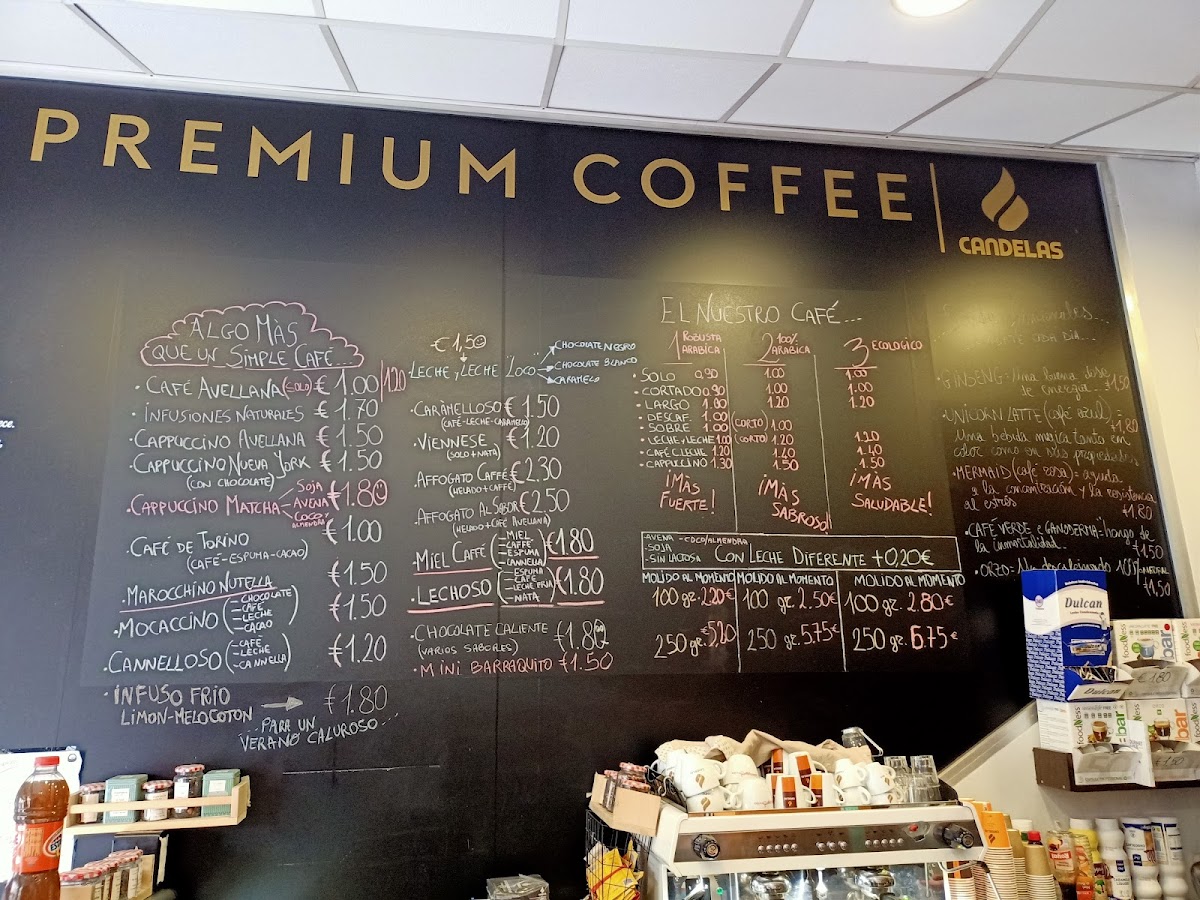 PREMIUM COFFEE
CANDELAS
ALGO MÀS
QUE UN SIMPLE CAFÉ...
· CAFÉ AVELLANA (SOLO) € 1.00 / 1.20
· INFUSIONES NATURALES € 1.70
· CAPPUCCINO AVELLANA € 1.50
· CAPPUCCINO NUEVA YORK € 1.50
(CON CHOCOLATE)
· CAPPUCCINO MATCHA € 1.80
SOJA
AVENA
COCO y
ALMENDRA
· CAFÉ DE TORINO € 1.00
(CAFÉ-ESPUMA-CACAO)
· MAROCCHINO NUTELLA € 1.50
· MOCACCINO € 1.50
- CHOCOLATE
- CAFÉ
- LECHE
- CACAO
· CANNELLOSO € 1.20
- CAFÉ
- LECHE
- CANNELLA
· INFUSO FRIO
LIMON-MELOCOTON → € 1.80
...PARA UN
VERANO CALUROSO...
€ 1,50
LECHE y LECHE LOCO
CHOCOLATE NEGRO
CHOCOLATE BLANCO
CARAMELO
· CARÀMELLOSO € 1.50
(CAFÉ-LECHE-CARAMELO)
· VIENNESE € 1.20
(SOLO+NATA)
· AFFOGATO CAFFÉ € 2.30
(HELADO+CAFFÉ)
· AFFOGATO AL SABOR € 2.50
(HELADO+CAFÉ AVELLANA)
· MIEL CAFFÉ € 1.80
- MIEL
- CAFFÉ
- ESPUMA
- CANNELLA
· LECHOSO € 1.80
- ESPUMA
- CAFÉ
- LECHE FRIA
- NATA
· CHOCOLATE CALIENTE € 1.80
(VARIOS SABORES)
· MINI BARRAQUITO € 1.50
EL NUESTRO CAFÉ...
1 ROBUSTA
ARABICA
2 100%
ARABICA
3 ECOLOGICO
· SOLO 0.90 1.00 1.00
· CORTADO 0.90 1.00 1.00
· LARGO 1.00 1.20 1.20
· DESCAF.
SOBRE 1.00 (CORTO) 1.00
· LECHE y LECHE 1.00 (CORTO) 1.20
· CAFÉ LECHE 1.20 1.40 1.40
· CAPPUCCINO 1.30 1.50 1.50
¡MÀS
FUERTE!
¡MÀS
SABROSO!
¡MÀS
SALUDABLE!
- AVENA - COCO/ALMENDRA
- SOJA
- SIN LACTOSA CON LECHE DIFERENTE +0,20€
MOLIDO AL MOMENTO MOLIDO AL MOMENTO MOLIDO AL MOMENTO
100 gr. 2.20€ 100 gr. 2.50€ 100 gr. 2.80€
250 gr. €5,20 250 gr. 5.75€ 250 gr. 6.75€
CADA DIA...
· GINSENG = Una buena dosis
de energia... €1,50
· UNICORN LATTE (café azul) = €1,80
Una bebida magica tanto en
color como en sus propiedades
· MERMAID (café rosa) = ayuda
a la concentración y la resistencia
al estrés €1.80
· CAFÉ VERDE e GANODERMA = hongo de
la inmortalidad. €1.50
· ORZO = 100% NATURAL
€1,50
Dulcan
Dulcan
foodNess
bar
foodNess
bar
bar
€ 1.50